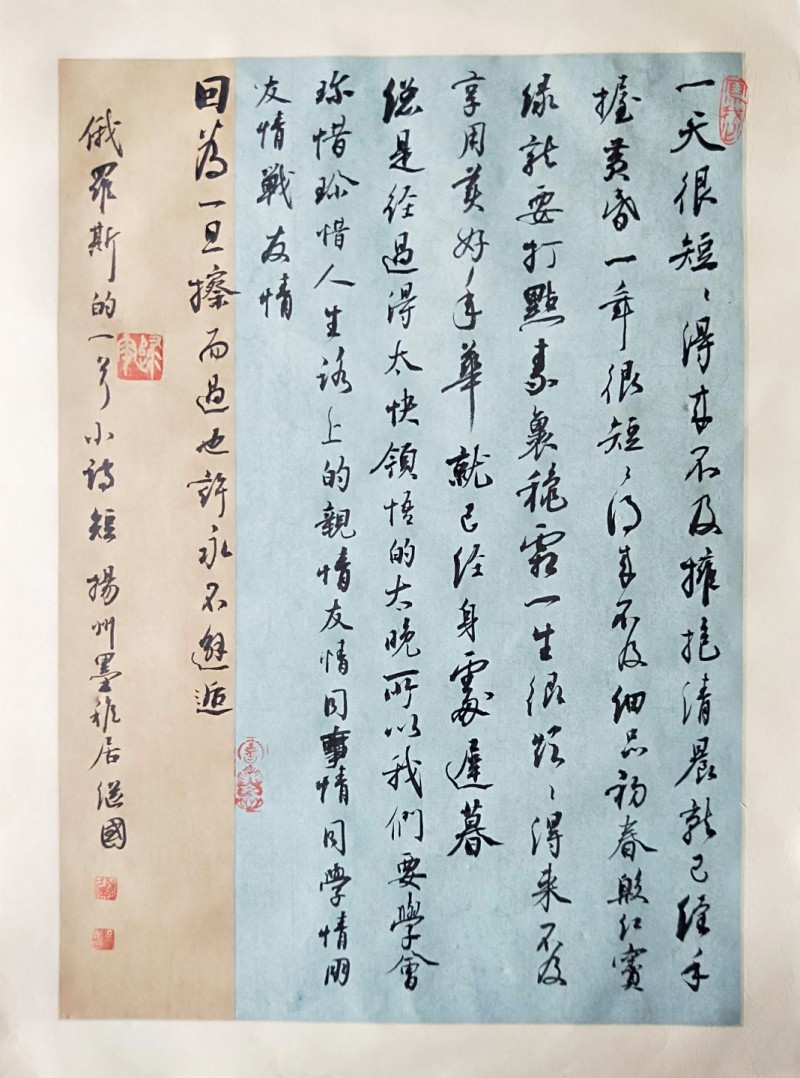 一天很短〻得来不及擁抱清晨就已經手
握黄昏一年很短〻得来不及细品初春殷红窦
绿就要打點素裹穐霜一生很短〻得来不及
享用美好年華就已经身處遲暮
總是经過得太快领悟的太晚所以我們要學會
珍惜珍惜人生路上的親情友情同事情同學情朋
友情戰友情
回為一旦擦而過也許永不邂逅
俄羅斯的一首小詩短 揚州墨稚居继國